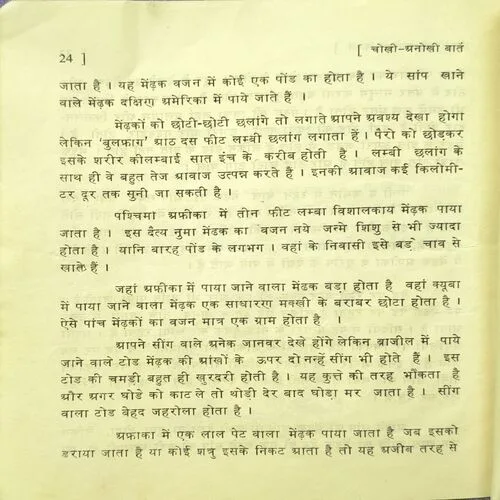 24 ]
[ चोखी-अनोखी बातें
जाता है । यह मेंढ़क वजन में कोई एक पोंड का होता है । ये सांप खाने
वाले मेंढ़क दक्षिण अमेरिका में पाये जाते हैं ।
मेंढ़कों को छोटी-छोटी छलांगें तो लगाते आपने अवश्य देखा होगा
लेकिन 'बुलफ्राग' आठ दस फीट लम्बी छलांग लगाता हैं । पैरो को छोड़कर
इसके शरीर कीलम्बाई सात इंच के करीब होती है । लम्बी छलांग के
साथ ही वे बहुत तेज आवाज उत्पन्न करते हैं । इनकी आवाज कई किलोमी-
टर दूर तक सुनी जा सकती है ।
पश्चिमी अफ्रीका में तीन फीट लम्बा विशालकाय मेंढ़क पाया
जाता है । इस दैत्य नुमा मेंढक का वजन नये जन्मे शिशु से भी ज्यादा
होता है । यानि बारह पोंड के लगभग । वहां के निवासी इसे बड़े चाव से
खाते हैं ।
जहां अफ्रीका में पाया जाने वाला मेंढक बड़ा होता है वहां क्यूबा
में पाया जाने वाला मेंढ़क एक साधारण मक्खी के बराबर छोटा होता है ।
ऐसे पांच मेंढ़कों का वजन मात्र एक ग्राम होता है ।
आपने सींग वाले अनेक जानवर देखे होंगे लेकिन ब्राजील में पाये
जाने वाले टोड मेंढ़क की आंखों के ऊपर दो नन्हें सींग भी होते हैं । इस
टोड की चमड़ी बहुत ही खुरदरी होती है । यह कुत्ते की तरह भौंकता है
और अगर घोडे को काट ले तो थोड़ी देर बाद घोड़ा मर जाता है । सींग
वाला टोड बेहद जहरोला होता है ।
अफ्रीका में एक लाल पेट वाला मेंढ़क पाया जाता है जब इसको
डराया जाता है या कोई शत्रु इसके निकट आता है तो यह अजीब तरह से